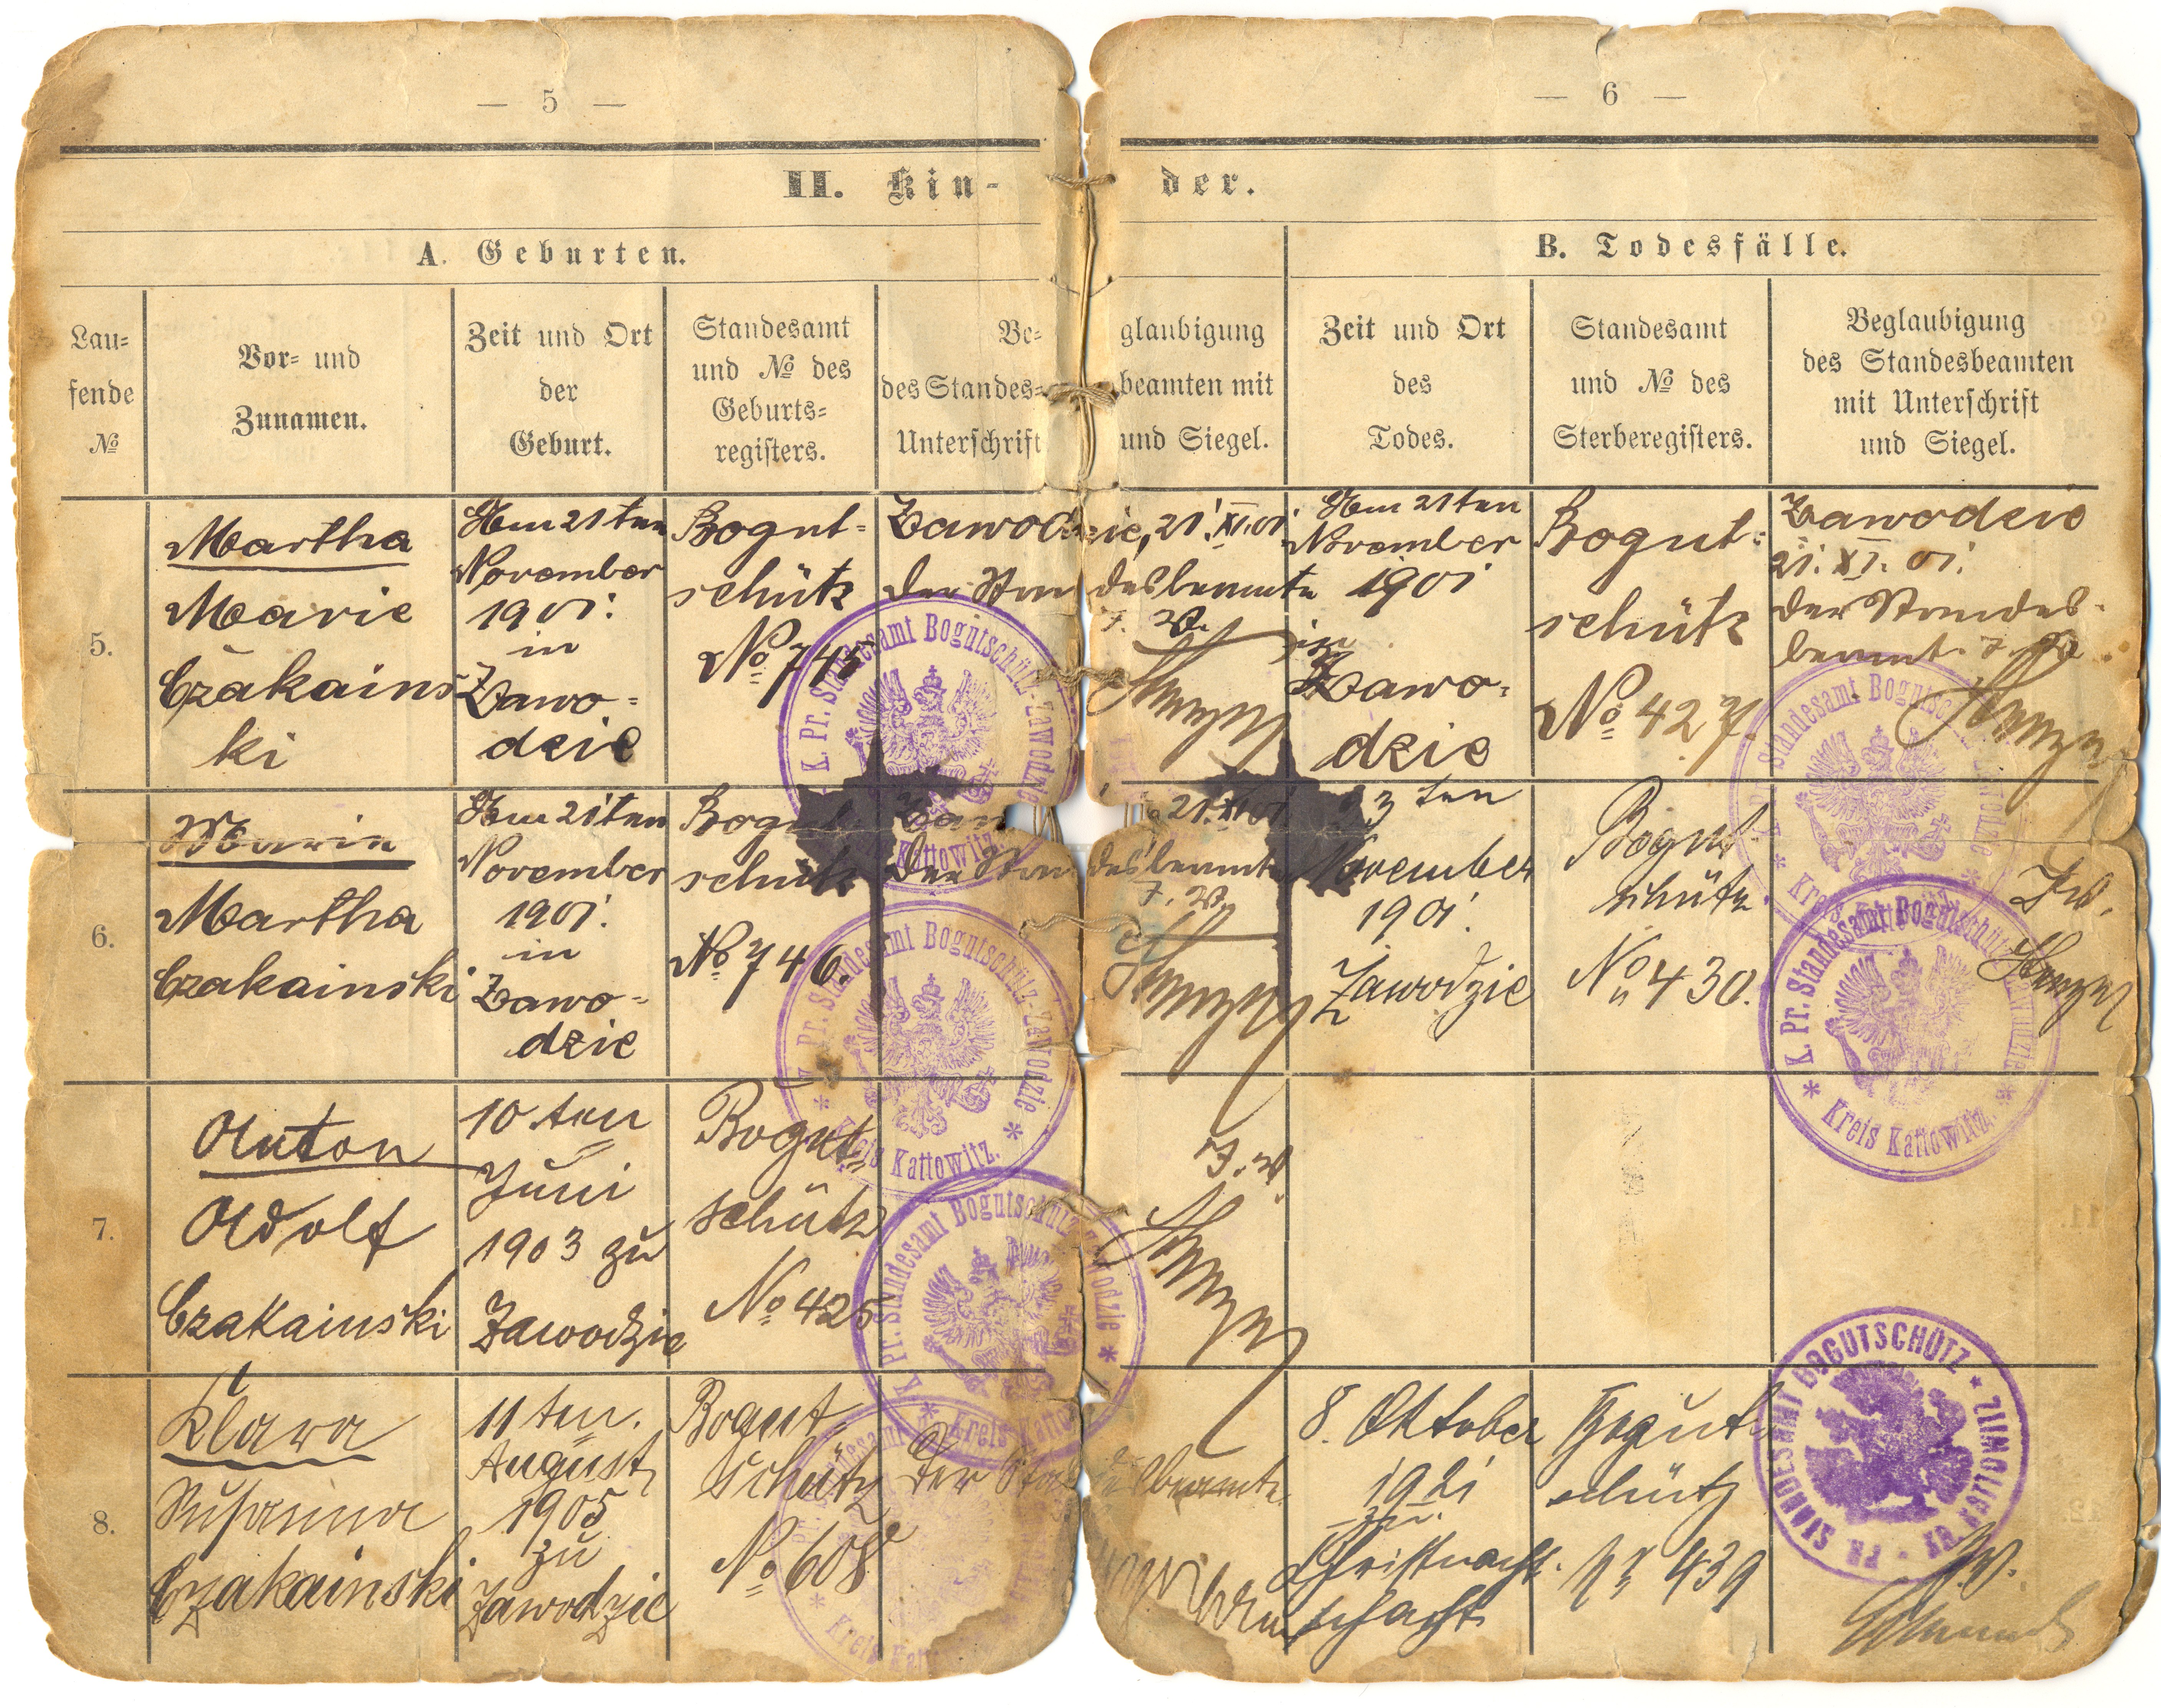 — 5 —
— 6 —
II. Kin-
der.
A. Geburten.
B. Todesfälle.
Lau-
fende
№
Vor- und
Zunamen.
Zeit und Ort
der
Geburt.
Standesamt
und № des
Geburts-
registers.
Be-
glaubigung
des Standes-
beamten mit
Unterschrift
und Siegel.
Zeit und Ort
des
Todes.
Standesamt
und № des
Sterberegisters.
Beglaubigung
des Standesbeamten
mit Unterschrift
und Siegel.
5.
Martha
Marie
Czakains
ki
Am 21ten
November
1901.
in
Zawo-
dzie
Bogut-
schütz
№ 745
Zawodzie, 21.XI.01.
Der Standesbeamte
J. V.
Am 21ten
November
1901
in
Zawo-
dzie
Bogut-
schütz
№ 427.
Zawodzie
21. XI. 01.
Der Standes-
beamt. J. V.
6.
Maria
Martha
Czakainski
Am 21ten
November
1901.
in
Zawo-
dzie
Bogut-
schütz
№ 746.
21.XI.01
Der Standesbeamte
J. V.
23ten
November
1901.
Zawodzie
Bogut-
schütz.
№ 430.
J.V.
7.
Anton
Adolf
Czakainski
10ten
Juni
1903 zu
Zawodzie
Bogut
schütz
№ 425
J. V.
8.
Klara
Susanna
Czakainski
11ten.
August
1905
zu
Zawodzie
Bogut
schütz
№ 608
Der Standesbeamte
8. Oktober
1921
zu
Christnacht-
schacht
Bogut
schütz
Nr 439
J.V.
K. Pr. Standesamt Bogutschütz-Zawodzie
* Kreis Kattowitz. *
K. Pr. Standesamt Bogutschütz-Zawodzie
* Kreis Kattowitz. *
K. Pr. Standesamt Bogutschütz-Zawodzie
* Kreis Kattowitz. *
K. Pr. Standesamt Bogutschütz-Zawodzie
* Kreis Kattowitz. *
K. Pr. Standesamt Bogutschütz-Zawodzie
* Kreis Kattowitz. *
PR. STANDESAMT BOGUTSCHÜTZ